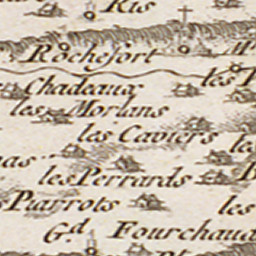 Ris
Rochefort
Chadeaux
les
les Morlans
les Caviers
les
les Perrards
Piarrots
les
G.d Fourchaud